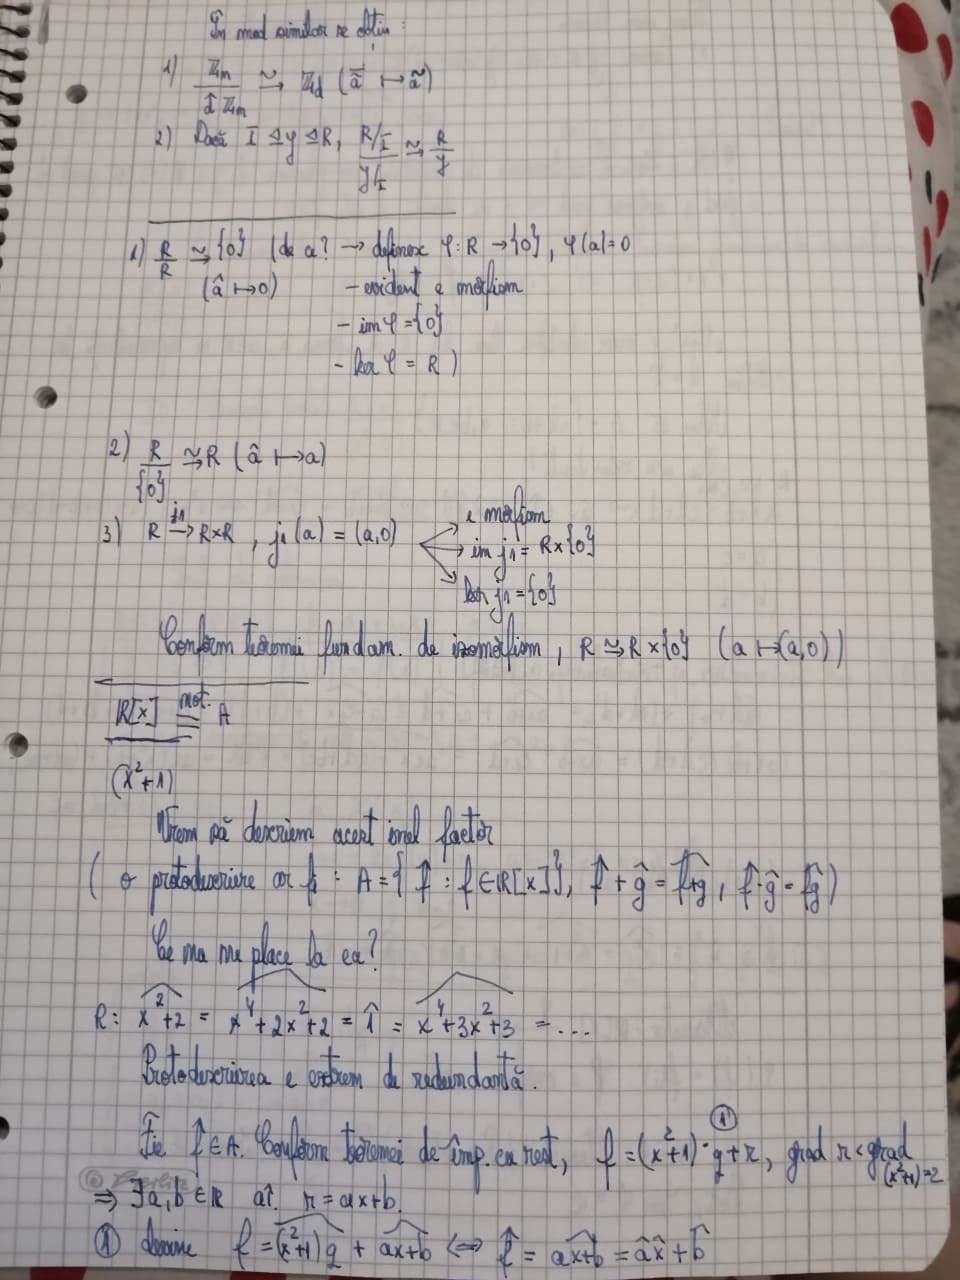 În mod similar se obțin:
1) ℤm / d̂ℤm ⥲ ℤd (a̅̂ ↦ ã)
2) Dacă I ⊴ J ⊴ R, (R/I)/(J/I) ⥲ R/J
1) R/R ⥲ {0} (de a? → definesc φ: R → {0}, φ(a)=0
(â ↦ 0) - evident e morfism
- im φ = {0}
- ker φ = R )
2) R/{0} ⥲ R (â ↦ a)
3) R →j1 R×R, j1(a) = (a,0)
e morfism
im j1 = R×{0}
ker j1 = {0}
Conform teoremei fundam. de izomorfism, R ⥲ R×{0} (a ↦ (a,0))
ℝ[x] / (x²+1) not. = A
Vrem să descriem acest inel factor
( o protodescriere ar fi : A = { f̂ : f ∈ ℝ[x]}, f̂ + ĝ = f+g, f̂ · ĝ = fg )
Ce nu ne place la ea?
R: x²+2 = x⁴+2x²+2 = 1̂ = x⁴+3x²+3 = ...
Protodescrierea e extrem de redundantă.
Fie f̂ ∈ A. Conform teoremei de împ. cu rest, f = (x²+1)·q + r, grad r < grad (x²+1) = 2
①
⇒ ∃ a, b ∈ ℝ aî. r = ax+b.
① devine f = (x²+1)q + ax+b ⟺ f̂ = ax+b = âx̂ + b̂